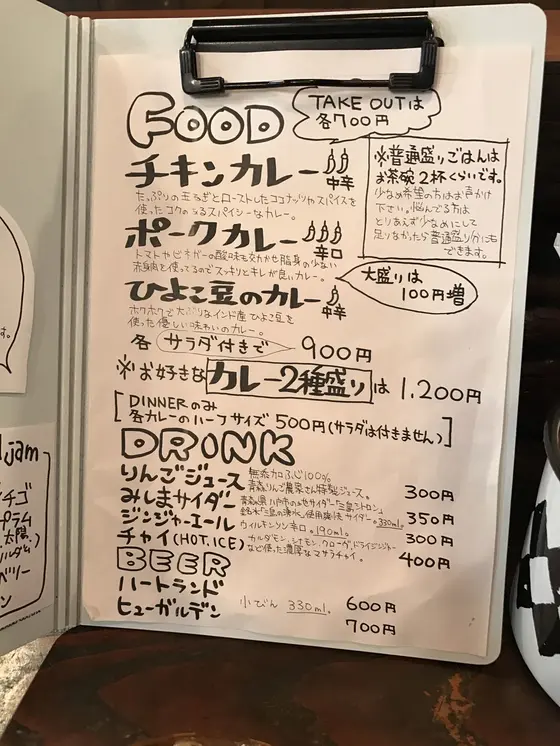 FOOD
TAKE OUTは
各700円
チキンカレー
中辛
たっぷりの玉ねぎとローストしたココナッツやスパイスを
使ったコクのあるスパイシーなカレー。
※普通盛りごはんは
お茶碗2杯くらいです。
少なめ希望の方はお声かけ
下さい。悩んでる方は
とりあえず少なめにして
足りなかったら普通盛り分にも
できます。
ポークカレー
辛口
トマトやビネガーの酸味も効かせ脂身の少ない
赤身肉を使ってるのでスッキリとキレが良いカレー。
大盛りは
100円増
ひよこ豆のカレー
中辛
ホクホクで大ぶりなインド産ひよこ豆を
使った優しい味わいのカレー。
各サラダ付きで 900円
※お好きなカレー2種盛りは 1,200円
[DINNERのみ
各カレーのハーフサイズ 500円(サラダは付きません)]
DRINK
りんごジュース 無添加ふじ100%
青森りんご農家さん特製ジュース。 300円
みしまサイダー 青森県八戸市のみやサイダー「三島シトロン」
銘水「三島の湧水」使用 サイダー。330ml。 350円
ジンジャーエール ウィルキンソン辛口。190ml。 300円
チャイ(HOT.ICE) カルダモン、シナモン、クローヴ、ドライジンジャー
など使った濃厚なマサラチャイ。 400円
BEER
ハートランド 小びん 330ml。 600円
ヒューガルデン 700円
す。
jam
チゴ
プラム
太陽
ベリー
ン